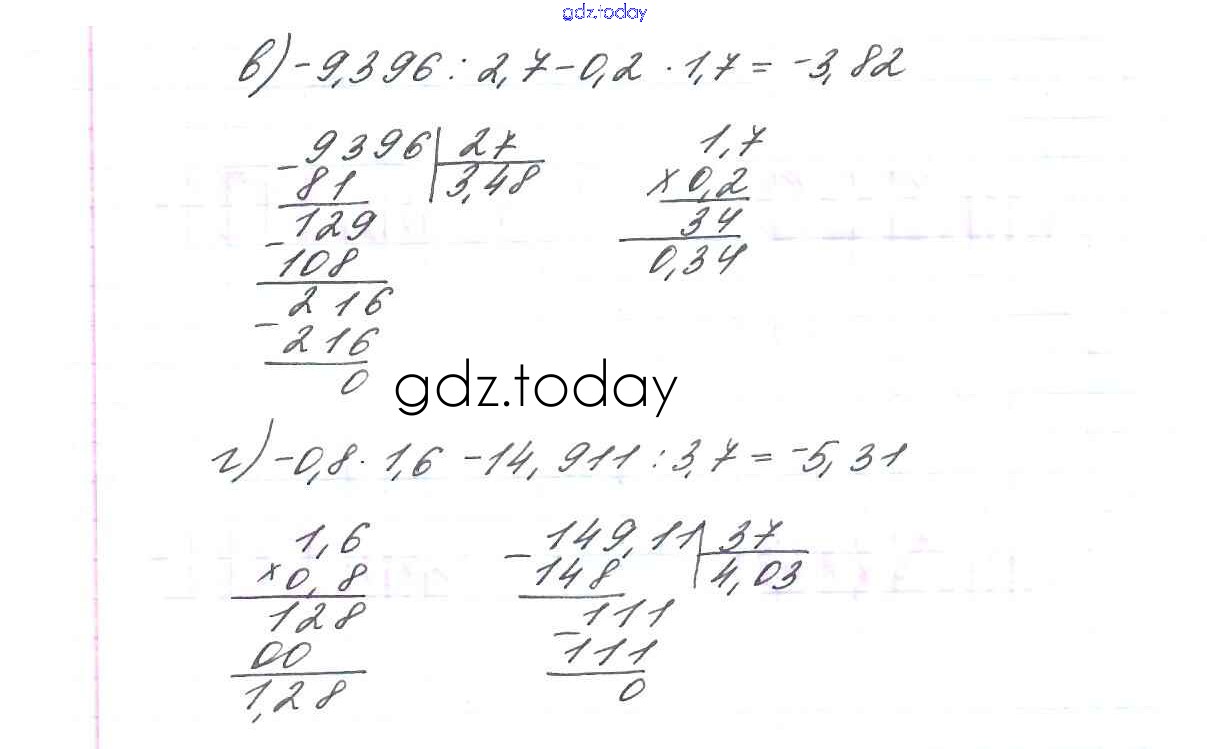 gdz.today
в) -9,396 : 2,7 - 0,2 · 1,7 = -3,82
- 9396 | 27
81 | 3,48
129
- 108
216
- 216
0
1,7
× 0,2
34
0,34
gdz.today
г) -0,8 · 1,6 - 14,911 : 3,7 = -5,31
1,6
× 0,8
128
00
1,28
- 149,11 | 37
148 | 4,03
- 111
111
0